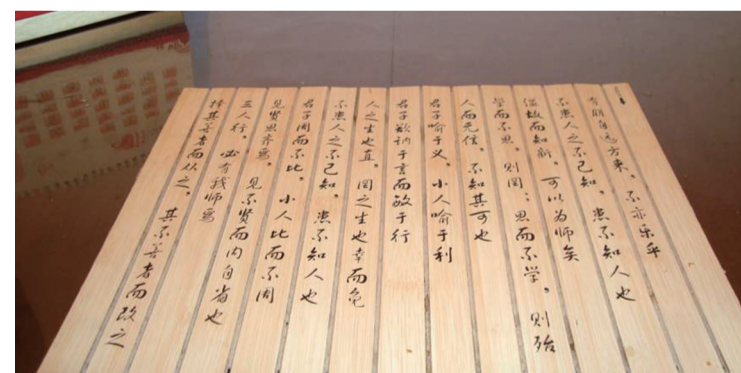 有朋自远方来，不亦乐乎
不患人之不己知，患不知人也
温故而知新，可以为师矣
学而不思，则罔；思而不学，则殆
人而无信，不知其可也
君子喻于义，小人喻于利
君子欲讷于言而敏于行
人之生也直，罔之生也幸而免
不患人之不己知，患不知人也
君子周而不比，小人比而不周
见贤思齐焉，见不贤而内自省也
三人行，必有我师焉
择其善者而从之，其不善者而改之